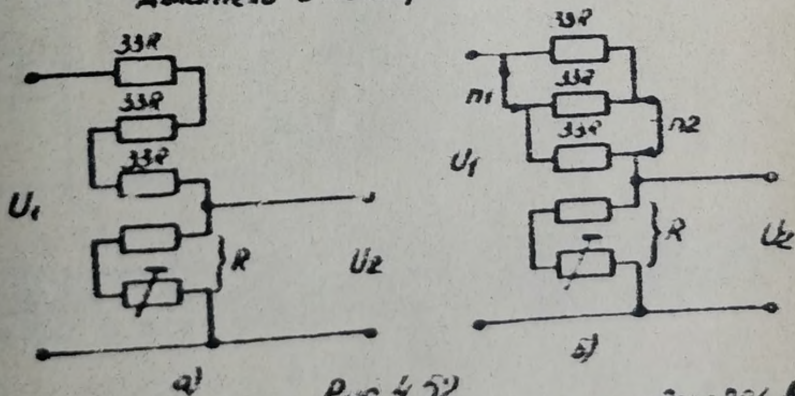 33R
33R
33R
U₁
R
U₂
а)
33R
33R
33R
п1
п2
U₁
R
U₂
б)